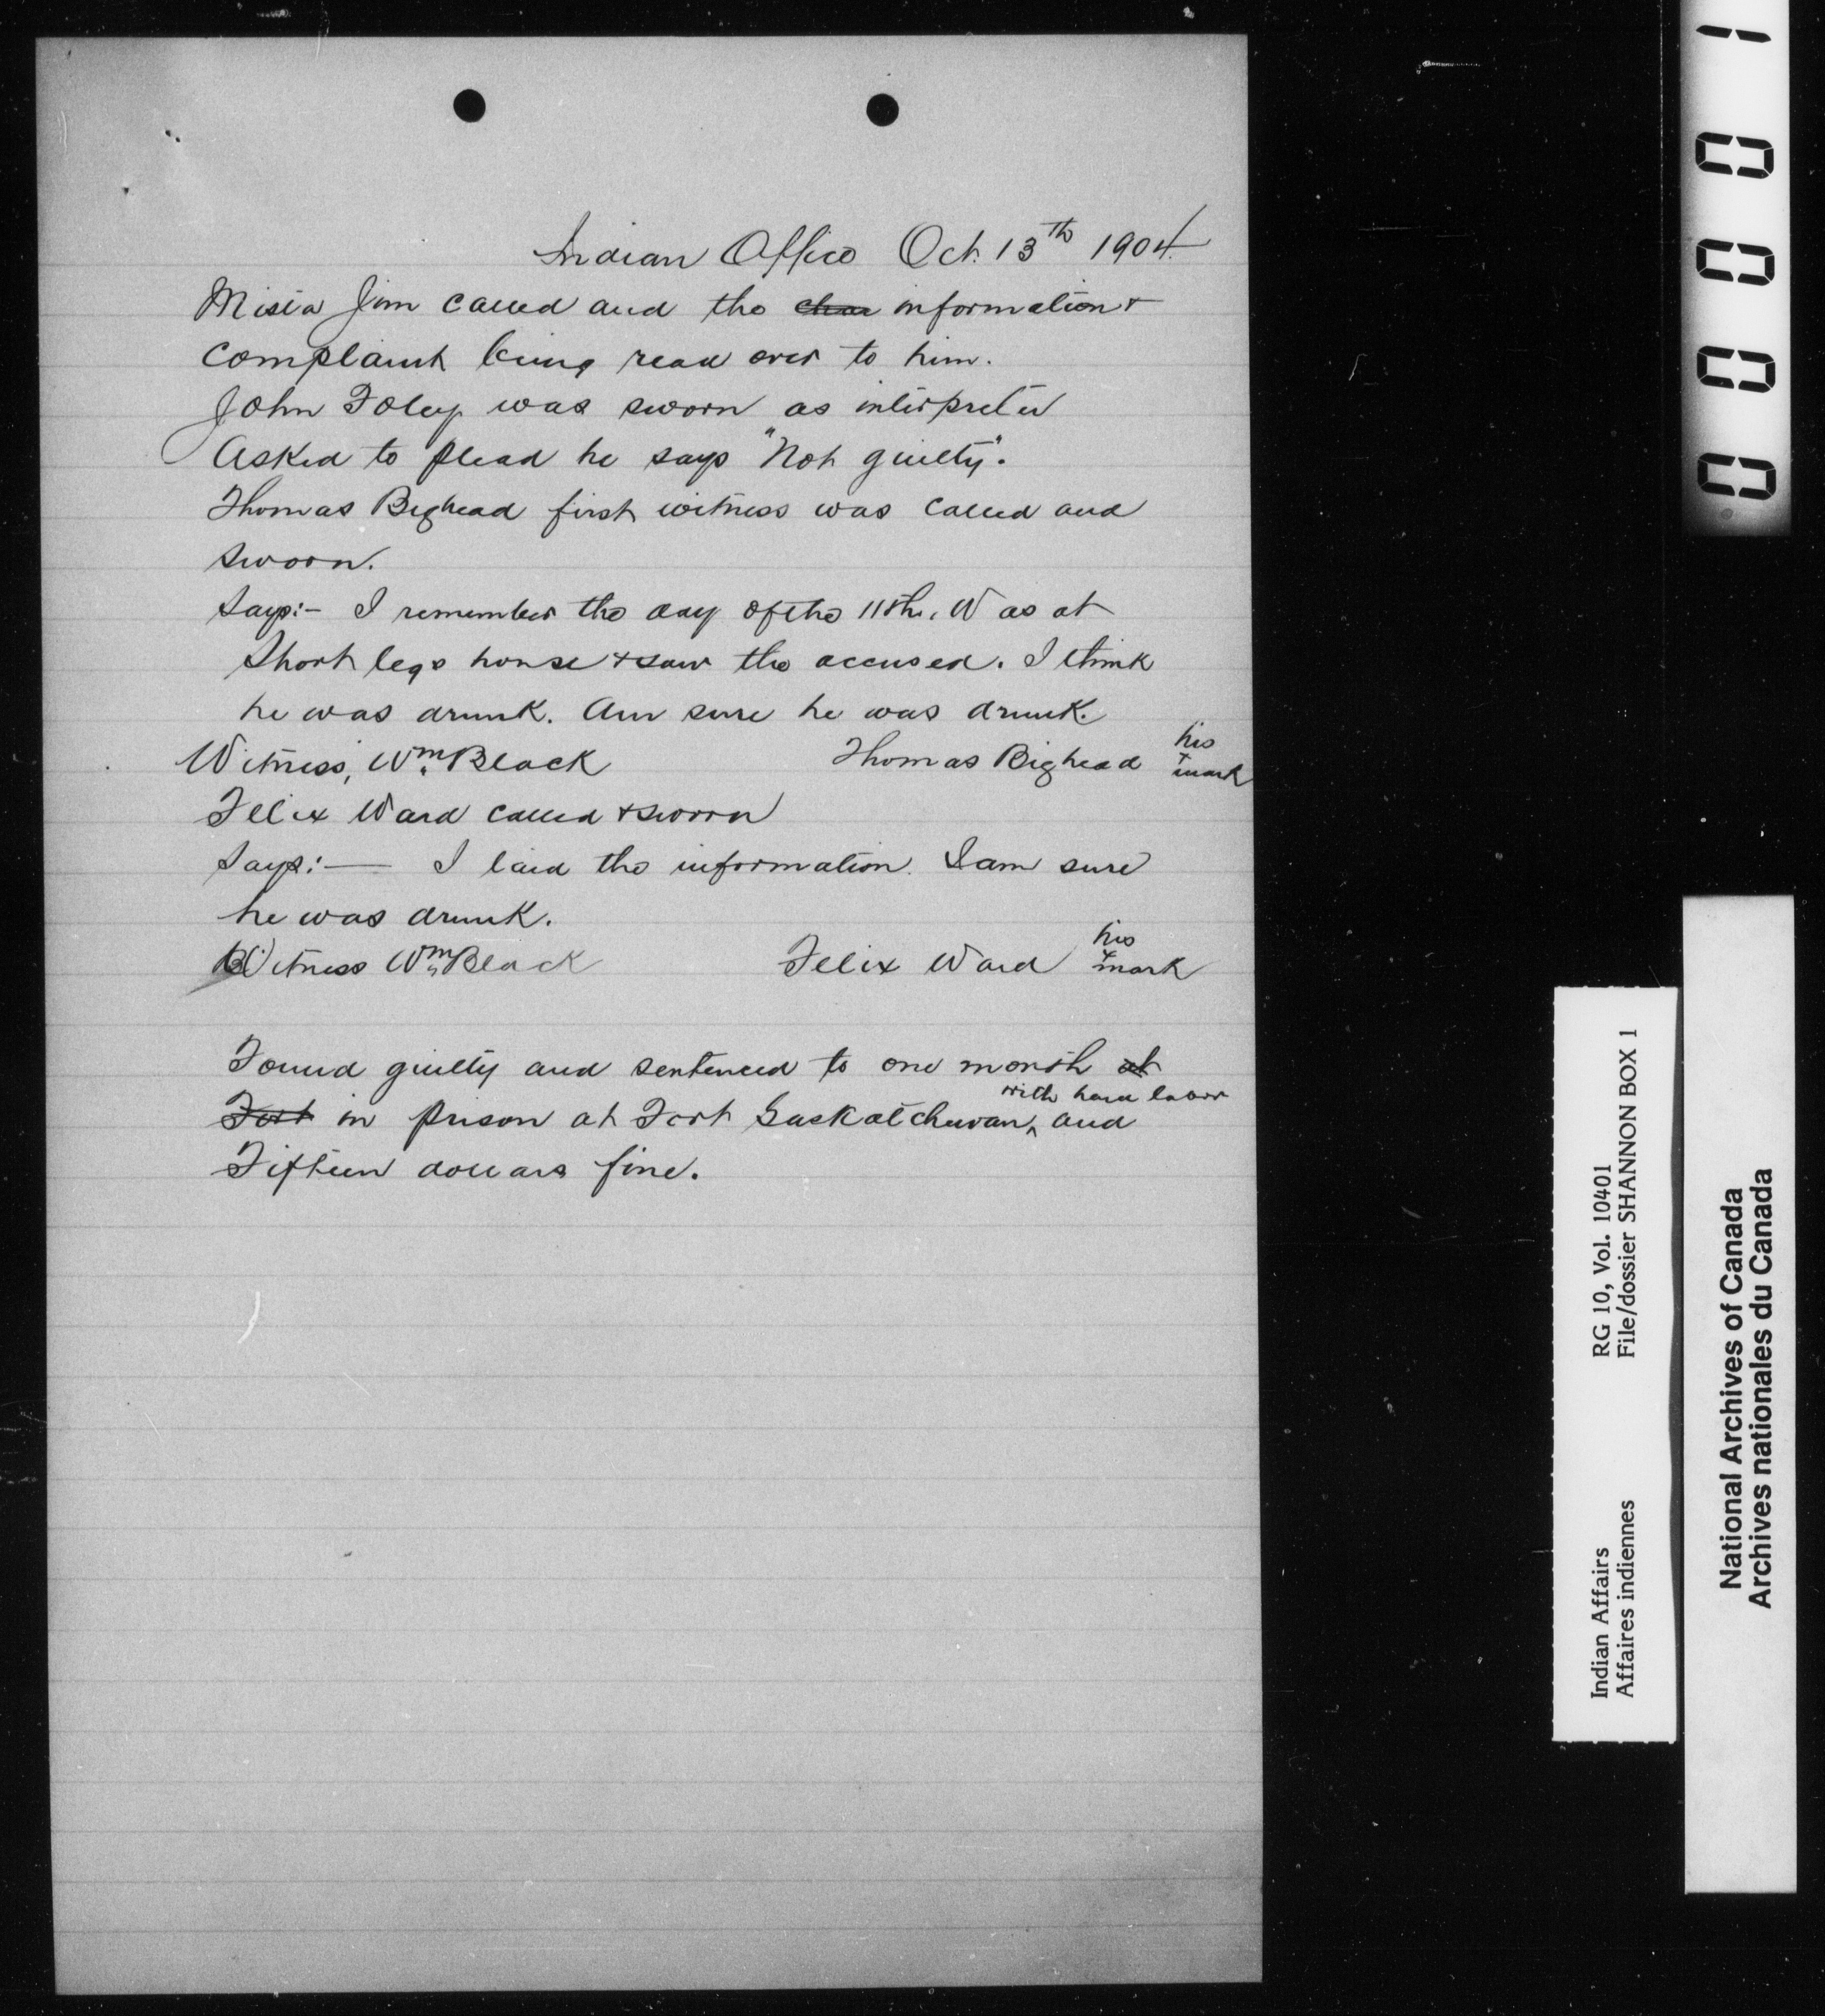 Indian Office Oct. 13th 1904.
Misia Jim called and the char information +
complaint being read over to him.
John Foley was sworn as interpreter
Asked to plead he says "Not guilty".
Thomas Bighead first witness was called and
sworn.
Says:- I remember the day of the 11th. Was at
Short legs house + saw the accused. I think
he was drunk. Am sure he was drunk.
Witness, Wm Black Thomas Bighead his + mark
Felix Ward called + sworn
Says:— I laid the information. I am sure
he was drunk.
Witness Wm Black Felix Ward his + mark
Found guilty and sentenced to one month at
Fort in prison at Fort Saskatchewan, with hard labor and
Fifteen dollars fine.
000001
Indian Affairs RG 10, Vol. 10401
Affaires indiennes File/dossier SHANNON BOX 1
National Archives of Canada
Archives nationales du Canada